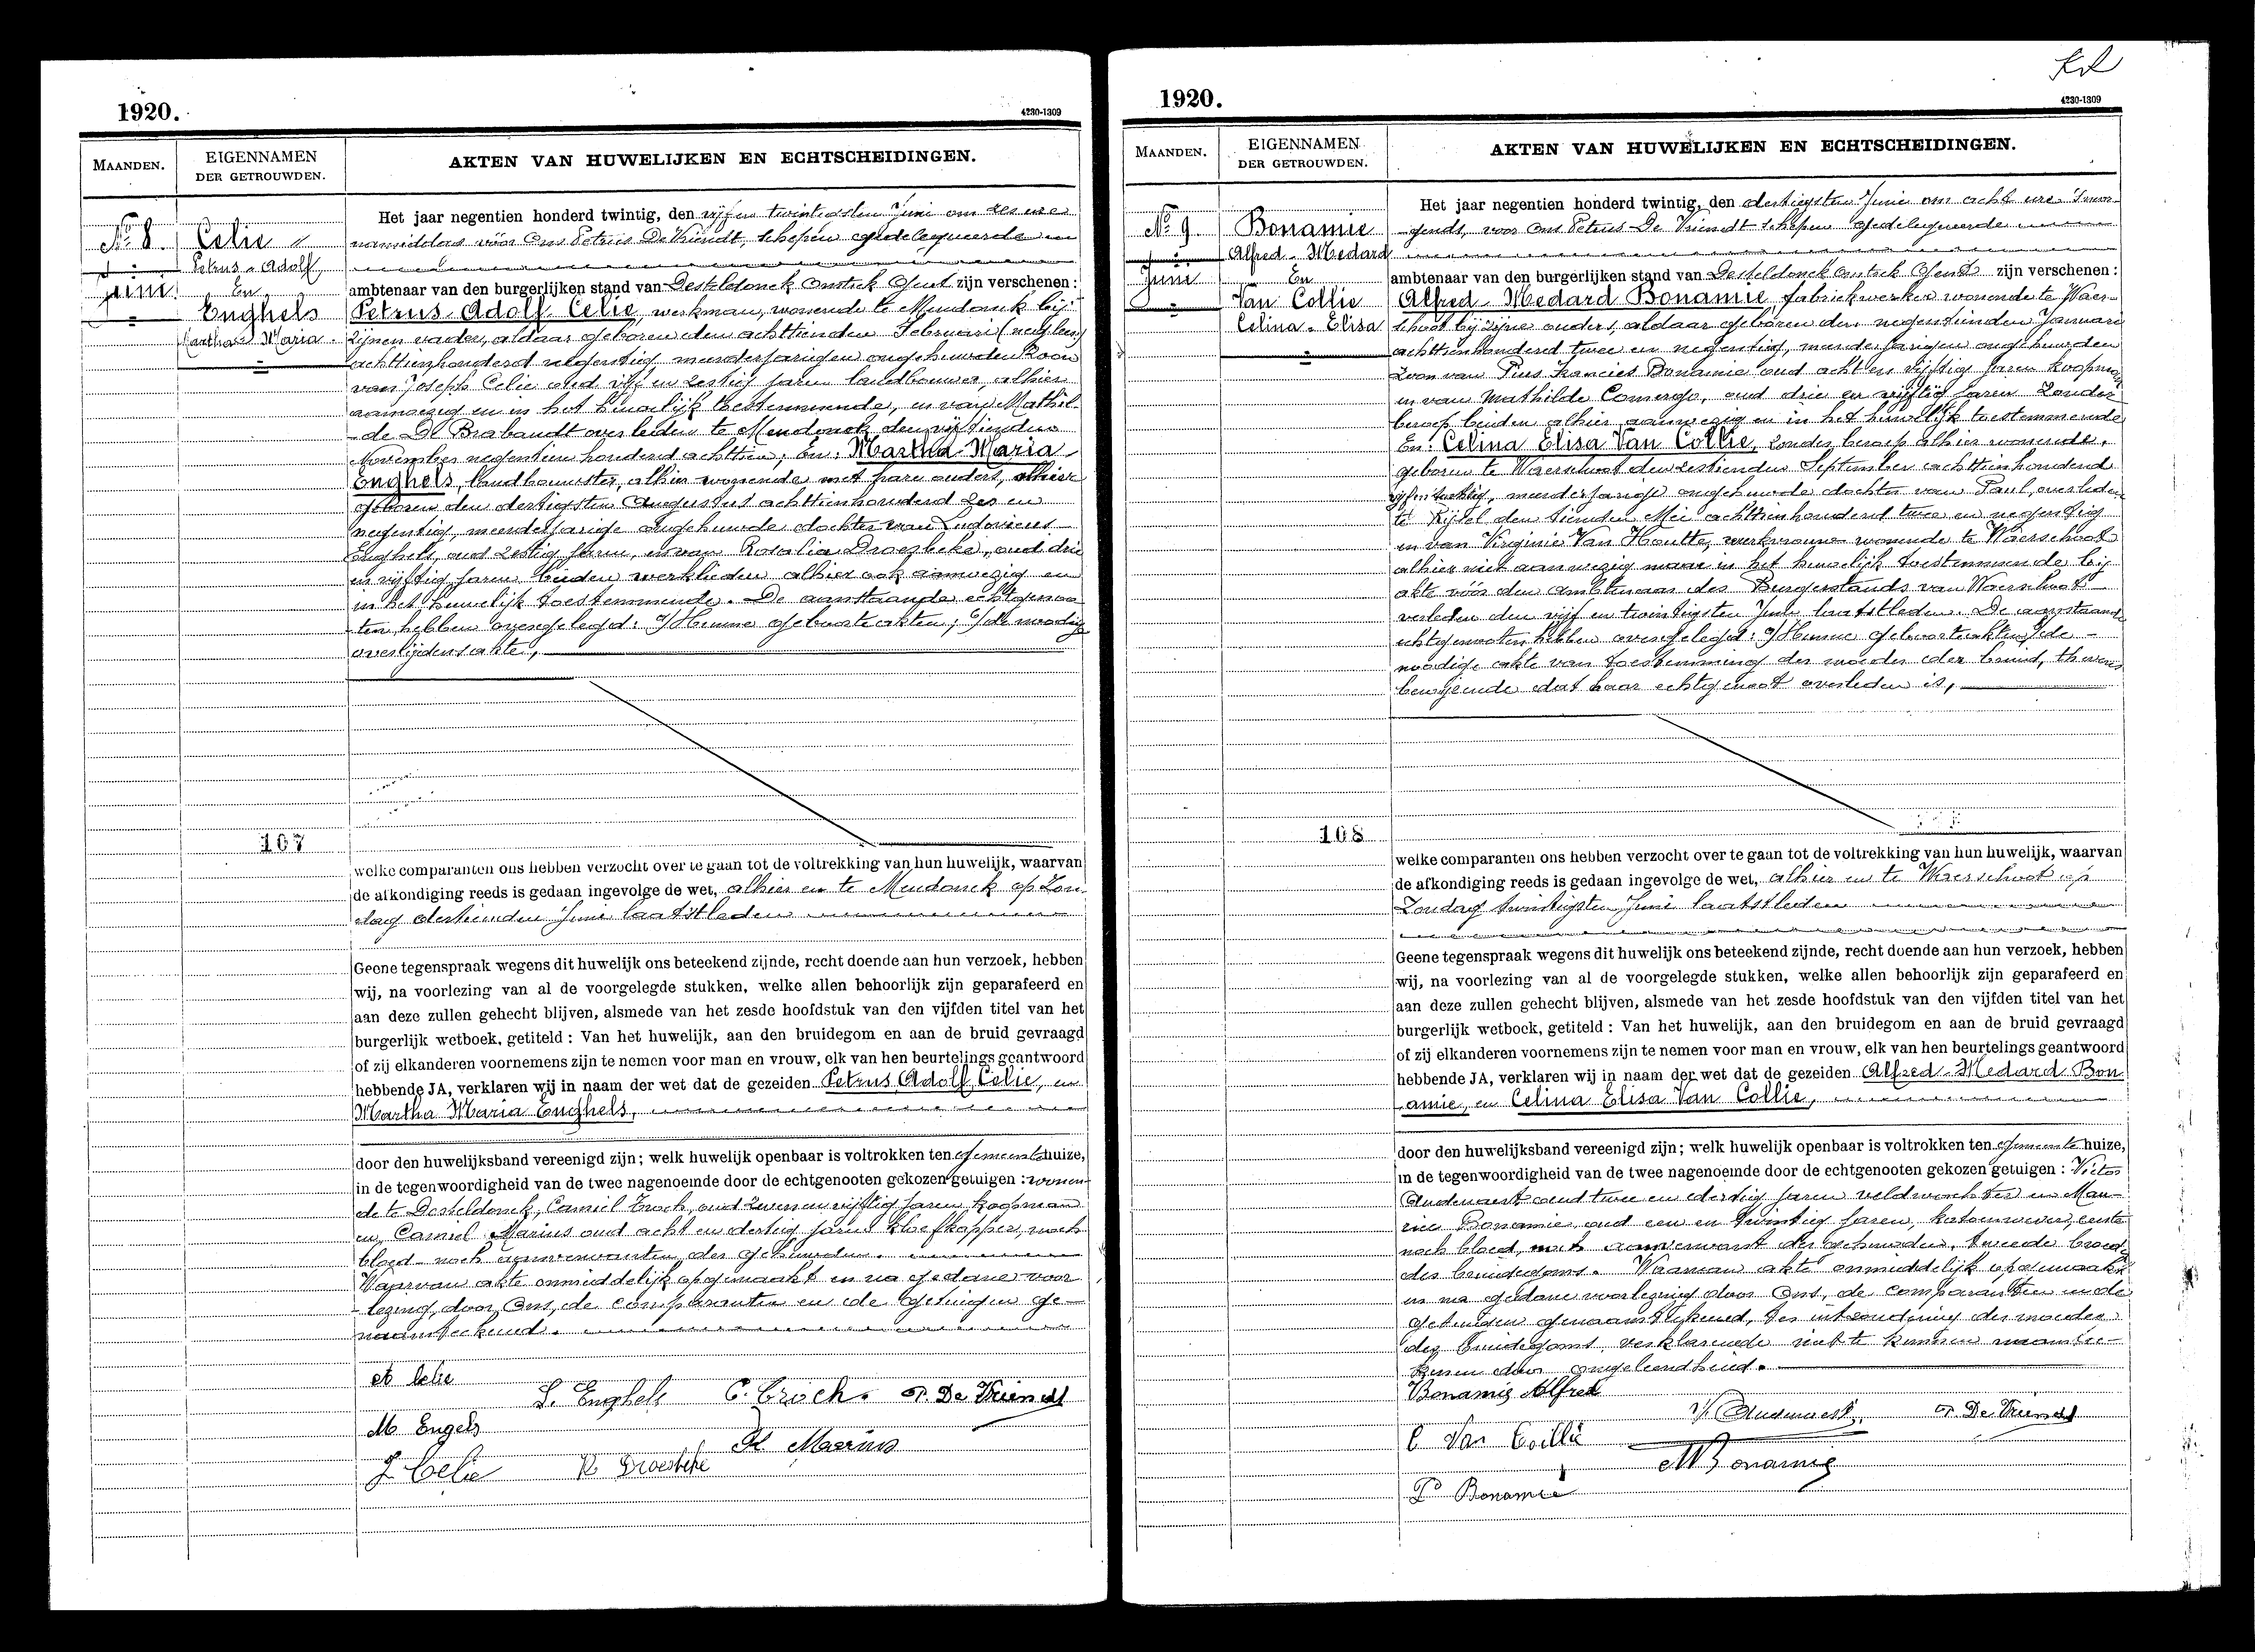 1920.
4230-1309
MAANDEN.
EIGENNAMEN
DER GETROUWDEN.
AKTEN VAN HUWELIJKEN EN ECHTSCHEIDINGEN.
No 8
Juni
Celie
Petrus - Adolf
En
Enghels
Martha Maria
Het jaar negentien honderd twintig, den vijf en twintigsten Juni om zes ure
namiddag vóór Ons Petrus De Vriendt, schepen gedelegueerde
ambtenaar van den burgerlijken stand van Desteldonck Omstek Gent zijn verschenen:
Petrus Adolf Celie, werkman, wonende te Mendonck bij
zijnen vader, aldaar geboren den achttienden Februari
achttienhonderd negentig, meerderjarigen ongehuwden Zoon
van Joseph Celie oud vijf en zestig jaren landbouwer, alhier
aanwezig en in het huwelijk toestemmende, en van Mathil-
de De Brabandt overleden te Mendonck den vijftienden
November negentien honderd achttien; En: Martha Maria
Enghels, landbouwster, alhier wonende met hare ouders, alhier
geboren den dertigsten Augustus achttienhonderd zes en
negentig, meerderjarige ongehuwde dochter van Ludovicus
Enghels, oud zestig jaren, en van Rosalia Droesbeke, oud drie
en vijftig jaren beiden werklieden alhier ook aanwezig en
in het huwelijk toestemmende. De aanstaande echtgenoo-
ten hebben overgelegd: Hunne geboorteakten; de noodige
overlijdensakte,
107
welke comparanten ons hebben verzocht over te gaan tot de voltrekking van hun huwelijk, waarvan
de afkondiging reeds is gedaan ingevolge de wet, alhier en te Mendonck op Zon-
dag dertienden Juni laatstleden
Geene tegenspraak wegens dit huwelijk ons beteekend zijnde, recht doende aan hun verzoek, hebben
wij, na voorlezing van al de voorgelegde stukken, welke allen behoorlijk zijn geparafeerd en
aan deze zullen gehecht blijven, alsmede van het zesde hoofdstuk van den vijfden titel van het
burgerlijk wetboek, getiteld : Van het huwelijk, aan den bruidegom en aan de bruid gevraagd
of zij elkanderen voornemens zijn te nemen voor man en vrouw, elk van hen beurtelings geantwoord
hebbende JA, verklaren wij in naam der wet dat de gezeiden Petrus Adolf Celie, en
Martha Maria Enghels,
door den huwelijksband vereenigd zijn; welk huwelijk openbaar is voltrokken ten Gemeentehuize,
in de tegenwoordigheid van de twee nagenoemde door de echtgenooten gekozen getuigen : wonen-
de te Desteldonck, Camiel oud en vijftig jaren koopman
en Camiel Marius oud acht en dertig jaren kloefkapper, noch
bloed- noch aanverwanten der gehuwden.
Waarvan akte onmiddelijk opgemaakt en na gedane voor-
lezing, door Ons, de comparanten en de getuigen ge-
naamteekend.
A Celie
L. Enghels
P. De Vriendt
M Engels
K Marius
J Celie
R Droesbeke
1920.
4230-1309
MAANDEN.
EIGENNAMEN
DER GETROUWDEN.
AKTEN VAN HUWELIJKEN EN ECHTSCHEIDINGEN.
No 9
Juni
Bonamie
Alfred - Medard
En
Van Collie
Celina - Elisa
Het jaar negentien honderd twintig, den dertigsten Juni om acht ure 's mor-
gends, voor Ons Petrus De Vriendt schepen gedelegueerde
ambtenaar van den burgerlijken stand van Desteldonck Omstek Gent zijn verschenen:
Alfred Medard Bonamie, fabriekwerker wonende te Waer-
schoot bij zijne ouders, aldaar geboren den negentienden Januari
achttienhonderd twee en negentig, meerderjarigen ongehuwden
Zoon van Pius Francies Bonamie oud acht en vijftig jaren koopman
en van Mathilde oud drie en vijftig jaren Zonder
beroep beiden alhier aanwezig en in het huwelijk toestemmende
En: Celina Elisa Van Collie, zonder beroep alhier wonende,
geboren te Waerschoot den zestienden September achttienhonderd
vijfentachtig, meerderjarige ongehuwde dochter van Paul, overleden
te Rijsel den tienden Mei achttienhonderd twee en negentig
en van Virginie Van Houtte, werkvrouw wonende te Waerschoot
alhier niet aanwezig maar in het huwelijk toestemmende bij
akte vóór den Ambtenaar des Burgerstands van Waerschoot
verleden den vijf en twintigsten Juni laatstleden. De aanstaande
echtgenooten hebben overgelegd: Hunne geboorteakten, de
noodige akte van toestemming der moeder der bruid,
bewijzende dat haar echtgenoot overleden is,
108
welke comparanten ons hebben verzocht over te gaan tot de voltrekking van hun huwelijk, waarvan
de afkondiging reeds is gedaan ingevolge de wet, alhier en te Waerschoot op
Zondag twintigsten Juni laatstleden
Geene tegenspraak wegens dit huwelijk ons beteekend zijnde, recht doende aan hun verzoek, hebben
wij, na voorlezing van al de voorgelegde stukken, welke allen behoorlijk zijn geparafeerd en
aan deze zullen gehecht blijven, alsmede van het zesde hoofdstuk van den vijfden titel van het
burgerlijk wetboek, getiteld : Van het huwelijk, aan den bruidegom en aan de bruid gevraagd
of zij elkanderen voornemens zijn te nemen voor man en vrouw, elk van hen beurtelings geantwoord
hebbende JA, verklaren wij in naam der wet dat de gezeiden Alfred Medard Bon-
amie, en Celina Elisa Van Collie,
door den huwelijksband vereenigd zijn; welk huwelijk openbaar is voltrokken ten Gemeentehuize,
in de tegenwoordigheid van de twee nagenoemde door de echtgenooten gekozen getuigen : Victor
Audenaert oud twee en dertig jaren veldwachter en Mau-
rice Bonamie oud een en twintig jaren, katoenwever, eerste
noch bloed, noch aanverwant der gehuwden, tweede broeder
des bruidegoms. Waarvan akte onmiddelijk opgemaakt
en na gedane voorlezing door Ons, de comparanten en de
getuigen genaamteekend, ter uitzondering der moeder
des bruidegoms, verklarende niet te kunnen naamtee-
kenen door ongeleerdheid.
Bonamie Alfred
V. Audenaert
P. De Vriendt
C Van Collie
M Bonamie
P Bonamie